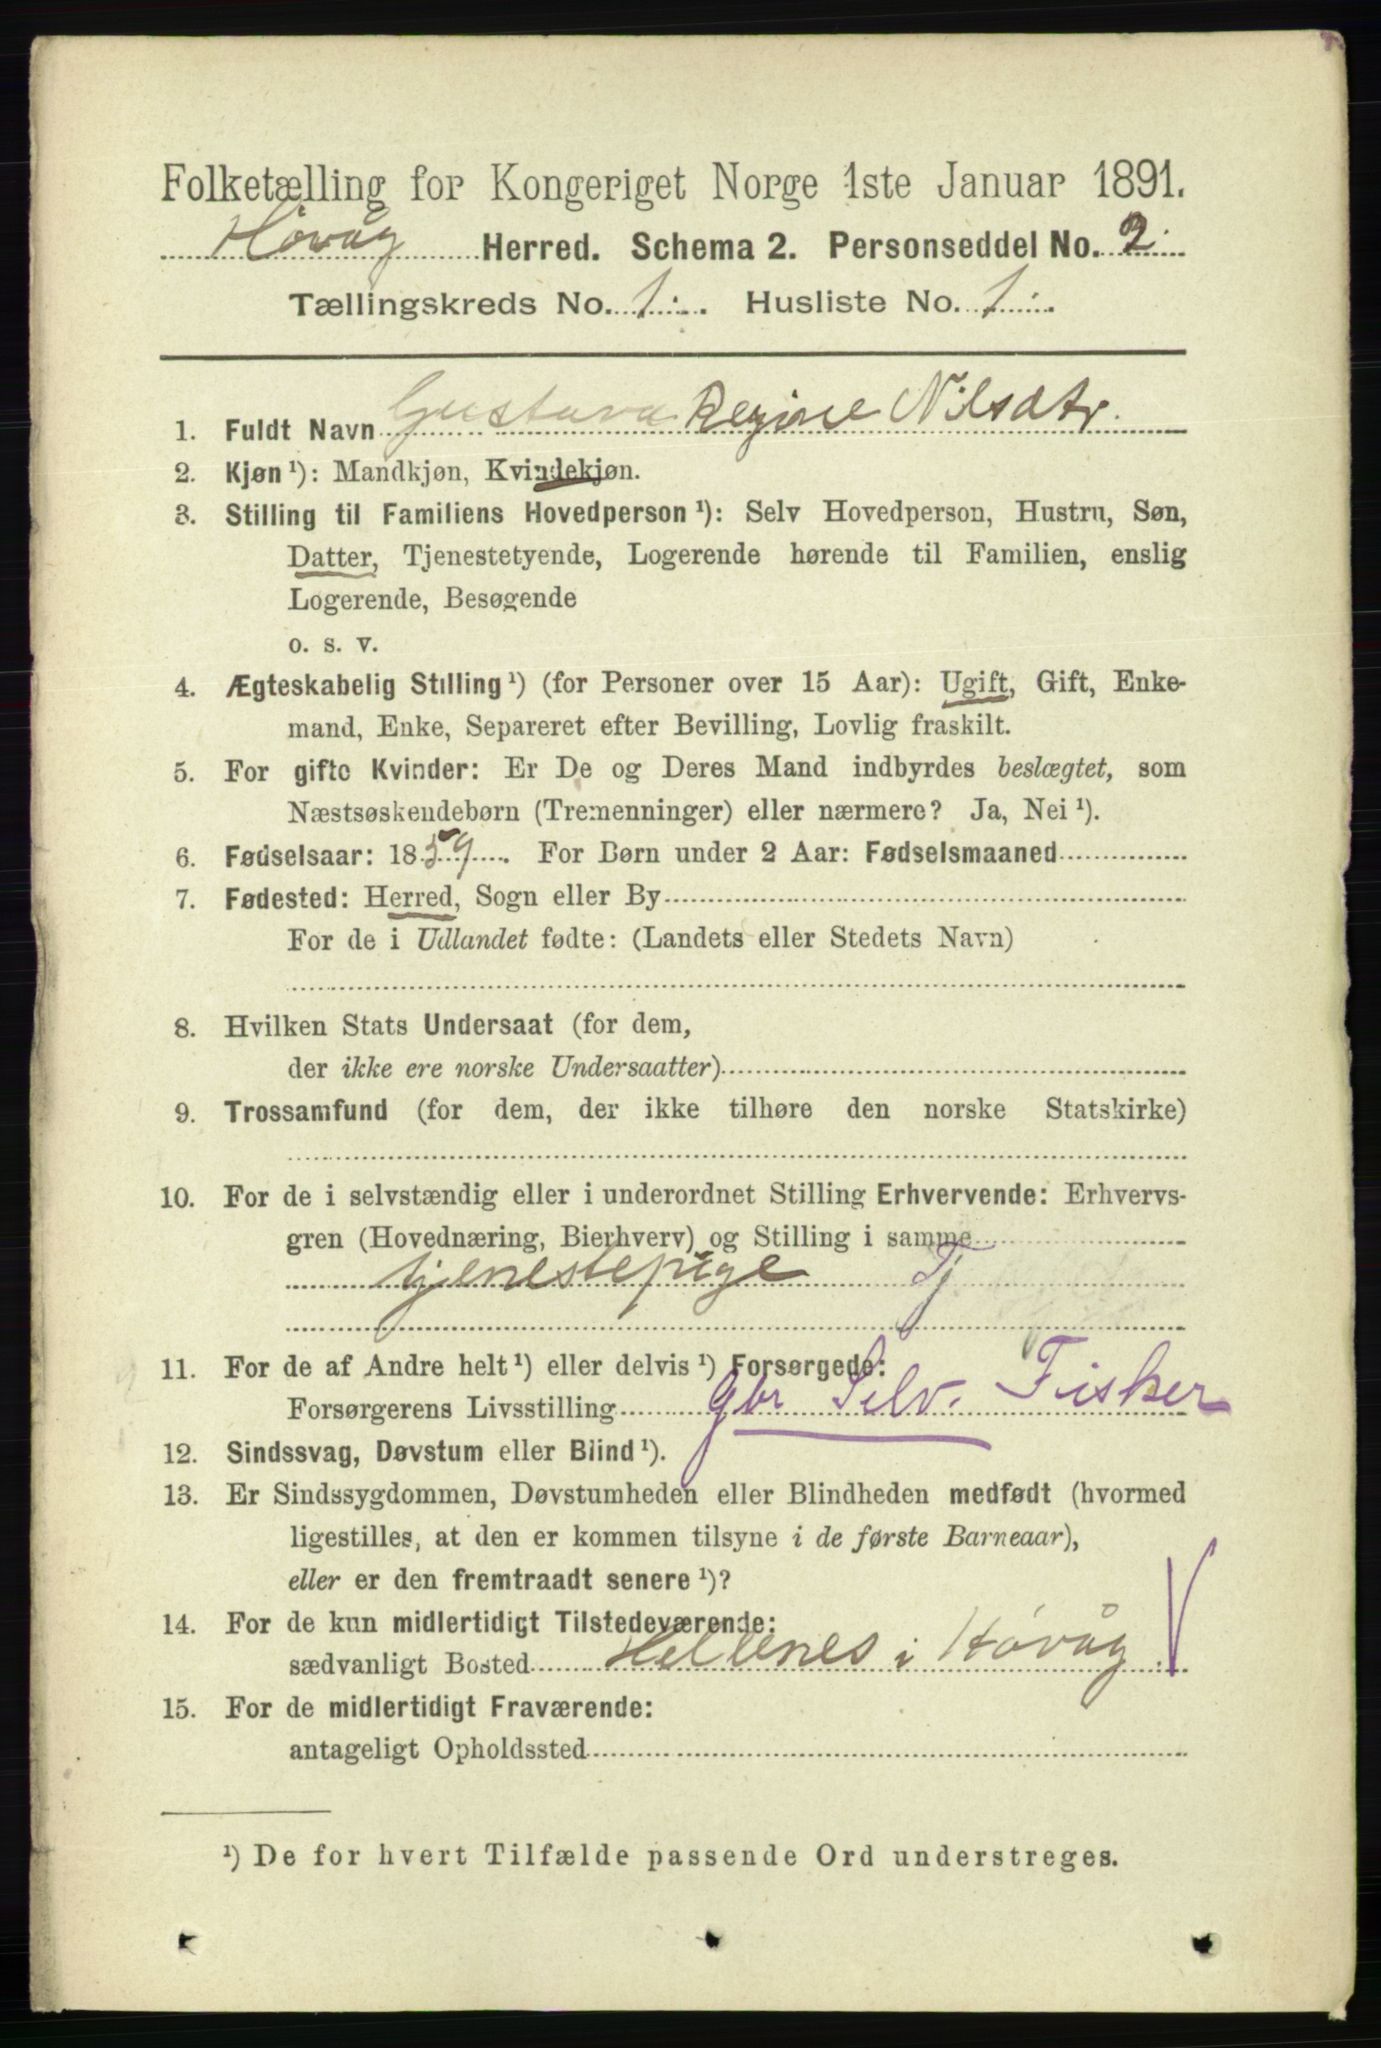 Folketælling for Kongeriget Norge 1ste Januar 1891.
Høvåg Herred. Schema 2. Personseddel No. 2
Tællingskreds No. 1. Husliste No. 1
1. Fuldt Navn Gustava Regine Nilsdtr.
2. Kjøn ¹): Mandkjøn, Kvindekjøn.
3. Stilling til Familiens Hovedperson ¹): Selv Hovedperson, Hustru, Søn,
Datter, Tjenestetyende, Logerende hørende til Familien, enslig
Logerende, Besøgende
o. s. v.
4. Ægteskabelig Stilling ¹) (for Personer over 15 Aar): Ugift, Gift, Enke-
mand, Enke, Separeret efter Bevilling, Lovlig fraskilt.
5. For gifte Kvinder: Er De og Deres Mand indbyrdes beslægtet, som
Næstsøskendebørn (Tremenninger) eller nærmere? Ja, Nei ¹).
6. Fødselsaar: 1859. For Børn under 2 Aar: Fødselsmaaned
7. Fødested: Herred, Sogn eller By
For de i Udlandet fødte: (Landets eller Stedets Navn)
8. Hvilken Stats Undersaat (for dem,
der ikke ere norske Undersaatter)
9. Trossamfund (for dem, der ikke tilhøre den norske Statskirke)
10. For de i selvstændig eller i underordnet Stilling Erhvervende: Erhvervs-
gren (Hovednæring, Bierhverv) og Stilling i samme
tjenestepige Tj
11. For de af Andre helt ¹) eller delvis ¹) Forsørgede:
Forsørgerens Livsstilling gbr Selv. Fisker
12. Sindssvag, Døvstum eller Blind ¹).
13. Er Sindssygdommen, Døvstumheden eller Blindheden medfødt (hvormed
ligestilles, at den er kommen tilsyne i de første Barneaar),
eller er den fremtraadt senere ¹)?
14. For de kun midlertidigt Tilstedeværende:
sædvanligt Bosted Hellenes i Høvåg V
15. For de midlertidigt Fraværende:
antageligt Opholdssted
¹) De for hvert Tilfælde passende Ord understreges.